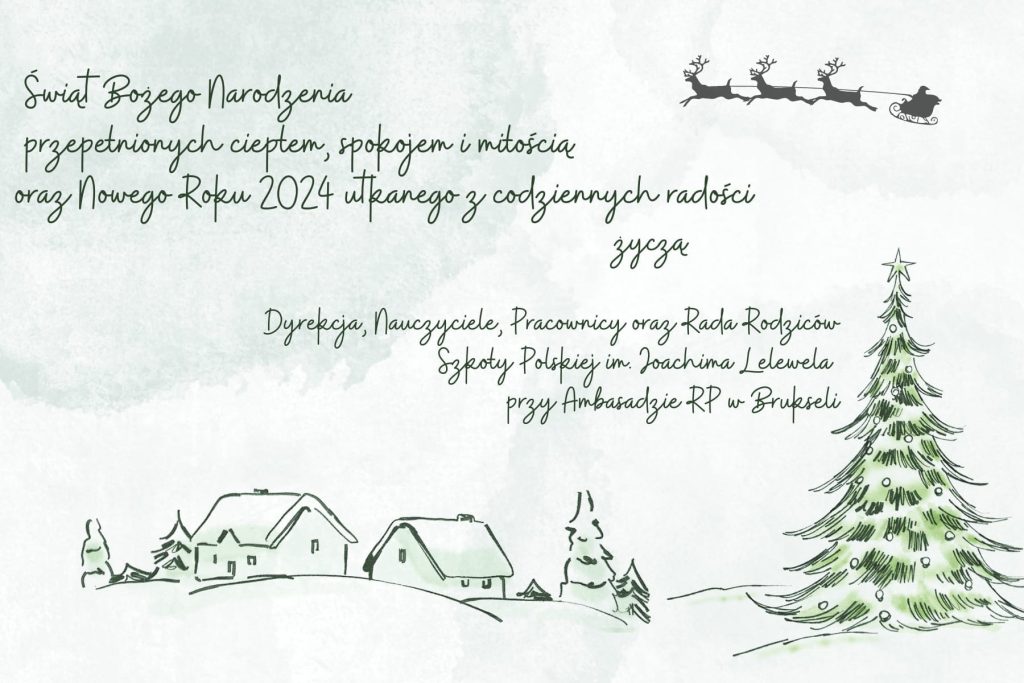 Świąt Bożego Narodzenia
przepełnionych ciepłem, spokojem i miłością
oraz Nowego Roku 2024 utkanego z codziennych radości
życzą
Dyrekcja, Nauczyciele, Pracownicy oraz Rada Rodziców
Szkoły Polskiej im. Joachima Lelewela
przy Ambasadzie RP w Brukseli